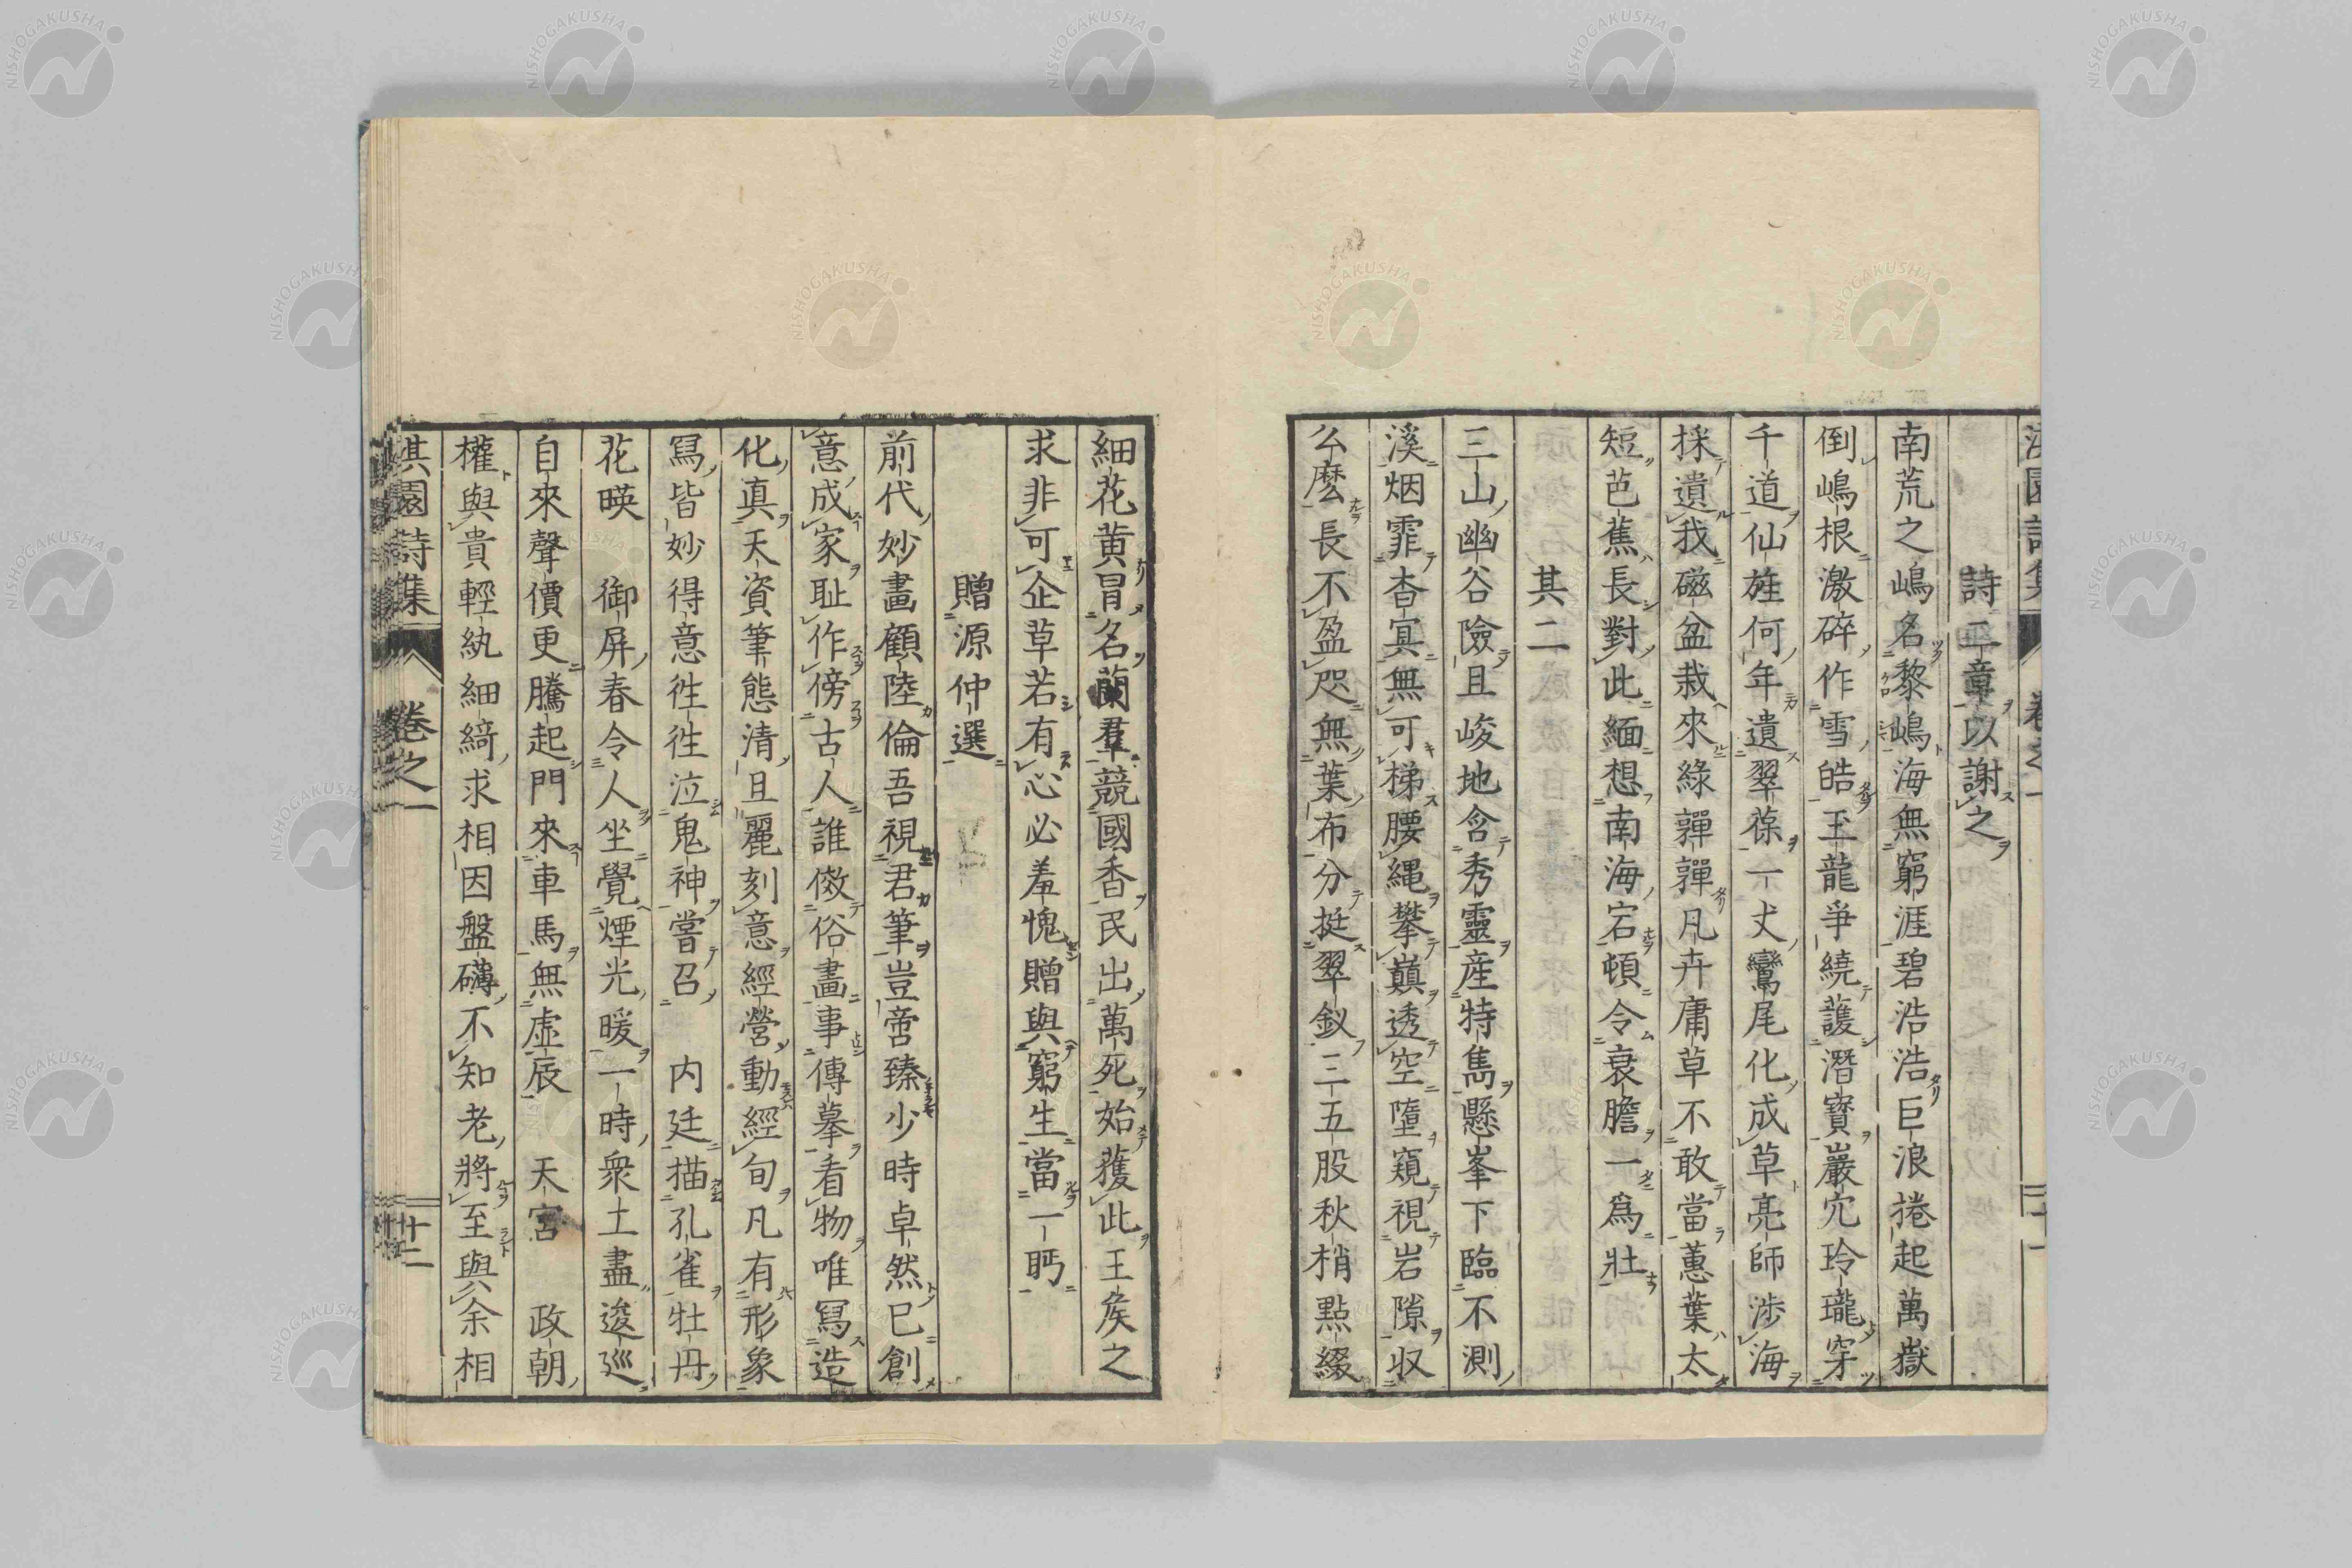 詩二章以謝之
南荒之嶋名黎嶋海無窮涯碧浩浩巨浪捲起萬嶽
倒嶋根激碎作雪皓玉龍爭繞護潛寶巖穴玲瓏穿
千道仙旌何年遺翠葆一丈鸞尾化成草亮師涉海
採遺我磁盆栽來綠嚲嚲凡卉庸草不敢當蕙葉太
短芭蕉長對此緬想南海宕頓令衰膽一爲壯
其二
三山幽谷險且峻地含秀靈産特雋懸峯下臨不測
溪烟霏杳冥無可梯腰縄攀巔透空墮窺視岩隙収
么麽長不盈咫無葉布分挺翠釵三五股秋梢點綴
細花黄冒名蘭羣競國香民出萬死始獲此王矦之
求非可企草若有心必羞愧贈與窮生當一眄
贈源仲選
前代妙畫顧陸倫吾視君筆豈啻臻少時卓然已創
意成家耻作傍古人誰傚俗畫事傳摹看物唯冩造
化真天資筆態清且麗刻意經營動經旬凡有形象
冩皆妙得意徃徃泣鬼神嘗召 内廷描孔雀牡丹
花暎 御屏春令人坐覺煙光暖一時衆士盡逡巡
自來聲價更騰起門來車馬無虚辰 天宮 政朝
權與貴輕紈細綺求相因盤礴不知老將至與余相
淇園詩集 卷之一 十二